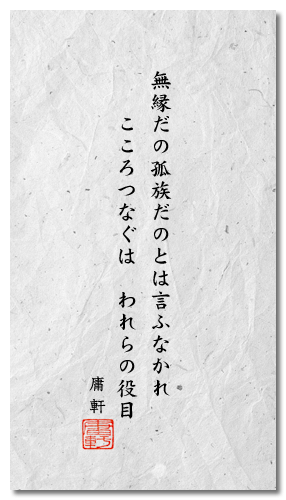 無縁だの孤族だのとは言ふなかれ
こころつなぐは　われらの役目
庸軒